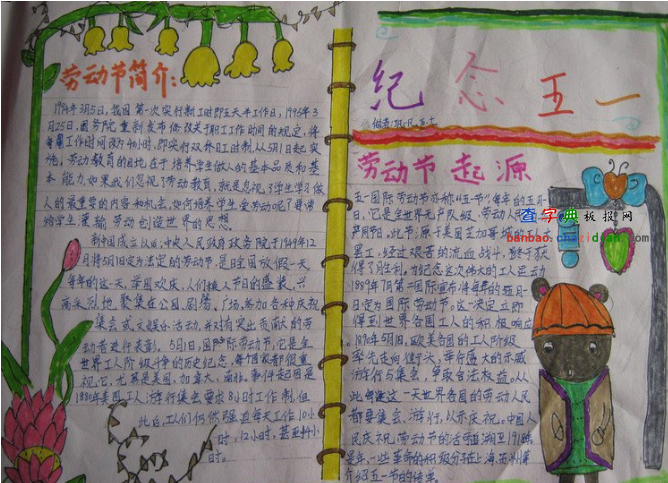 劳动节简介:
1994年3月5日,我国第一次实行新工时即五天半工作日,1995年3
月25日,国务院重新发布修改关于职工工作时间的规定,将
每周工作时间改为40小时,即实行双休日工时制,从5月1日起实
施。劳动教育的目的在于培养学生做人的基本品质和基
本能力,如果我们忽视了劳动教育,就是忽视了学生学习做
人的最重要的内容和机会,如何培养学生爱劳动呢?要带
给学生灌输劳动创造世界的思想
新中国成立以后,中央人民政府政务院于1949年12
月将5月1日定为法定的劳动节,是日全国放假一天
每年的这一天,举国欢庆,人们换上节日的盛装,兴
高采烈地聚集在公园,剧场,广场,参加各种庆祝
集会或文娱活动,并对有突出贡献的劳
动者进行表彰,5月1日,国际劳动节,它是全
世界工人阶级斗争的历史纪念,每个国家都很重
视,它,尤其是美国,加拿大,南非。事件起因是
1880年美国工人游行集会要求8小时工作制,但
此后,工人们仍然强迫每天工作10小
时,12小时,甚至种小
时。
纪念五一
劳动节起源
五一国际劳动节亦称"五一节"每年的五月一
日,它是全世界无产阶级、劳动人民的
共同节日,此节源于美国芝加哥城的工人大
罢工,经过艰苦的流血战斗,终于获
得了胜利,为纪念这次伟大的工人运动
1889年7月第二国际宣布将每年的五月一
日定为国际劳动节。这一决定立即
得到世界各国工人的积极响应
1890年5月1日,欧美各国的工人阶级
率先走向街头,举行盛大的示威
游行与集会,争取合法权益。从
此每逢这一天世界各国的劳动人民
都要集会、游行,以示庆祝。中国人
民庆祝劳动节的活动可追溯至1918年
是年,一些革命的知识分子在上海、苏州
介绍五一节的传单。
查字典板报网
banbao.chazidian.com